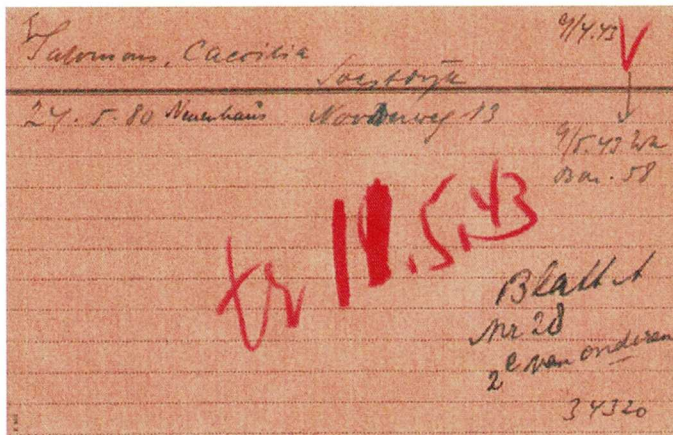 Salomons, Caecilia
9/4.43 V
Soestdijk
24. 5. 80 Neuenhaus Noorderweg 13
9/5.43 Wa
Bar. 58
tr 11.5.43
Blatt A
nr 28
2e van onderen
34320